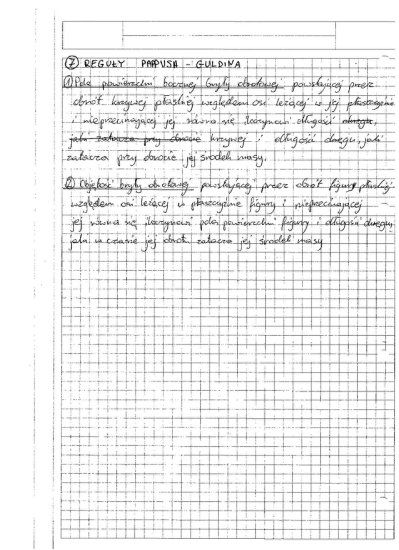 ⑦ REGUŁY PAPPUSA - GULDINA
① Pole powierzchni bocznej bryły obrotowej powstającej przez
obrót krzywej płaskiej względem osi leżącej w jej płaszczyźnie
i nieprzecinającej jej równa się iloczynowi długości okręgu,
jaki zatacza przy obrocie krzywej i długości okręgu, jaki
zatacza przy obrocie jej środek masy.
② Objętość bryły obrotowej powstającej przez obrót figury płaskiej
względem osi leżącej w płaszczyźnie figury i nieprzecinającej
jej równa się iloczynowi pola powierzchni figury i długości okręgu,
jaki w czasie jej obrotu zatacza jej środek masy